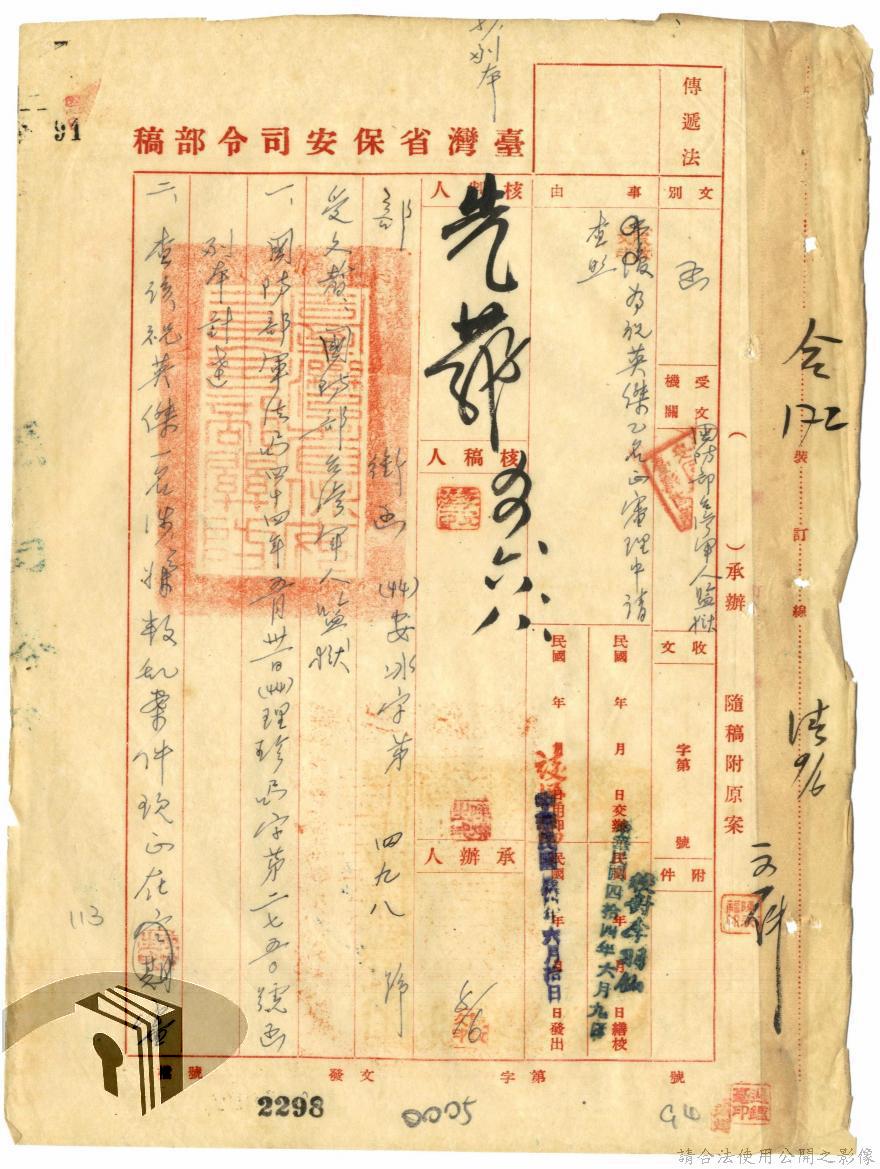 抄副本
91
臺灣省保安司令部稿
傳遞法
文別
函
受文機關
國防部台灣軍人監獄
事由
為祝英傑乙名正審理中請
查照
核判人
核稿人
六八
承辦人
5/6
收文
字第
號
附件
民國
年
月
日交辦
中華民國四拾四年六月九日
日繕校
校對李
民國
年
六月拾日
日發出
(
)承辦
隨稿附原案
裝訂線
文件
部銜函
(44)安
字第
四九八
號
受文者:國防部台灣軍人監獄
一、國防部軍法局四十四年五月卅一日(44)理珍局字第二七五〇號函
副本計達
二、查該祝英傑一名涉嫌叛亂案件現正在定期審
檔號
發文
字
第
號
113
2298
0005
請合法使用公開之影像